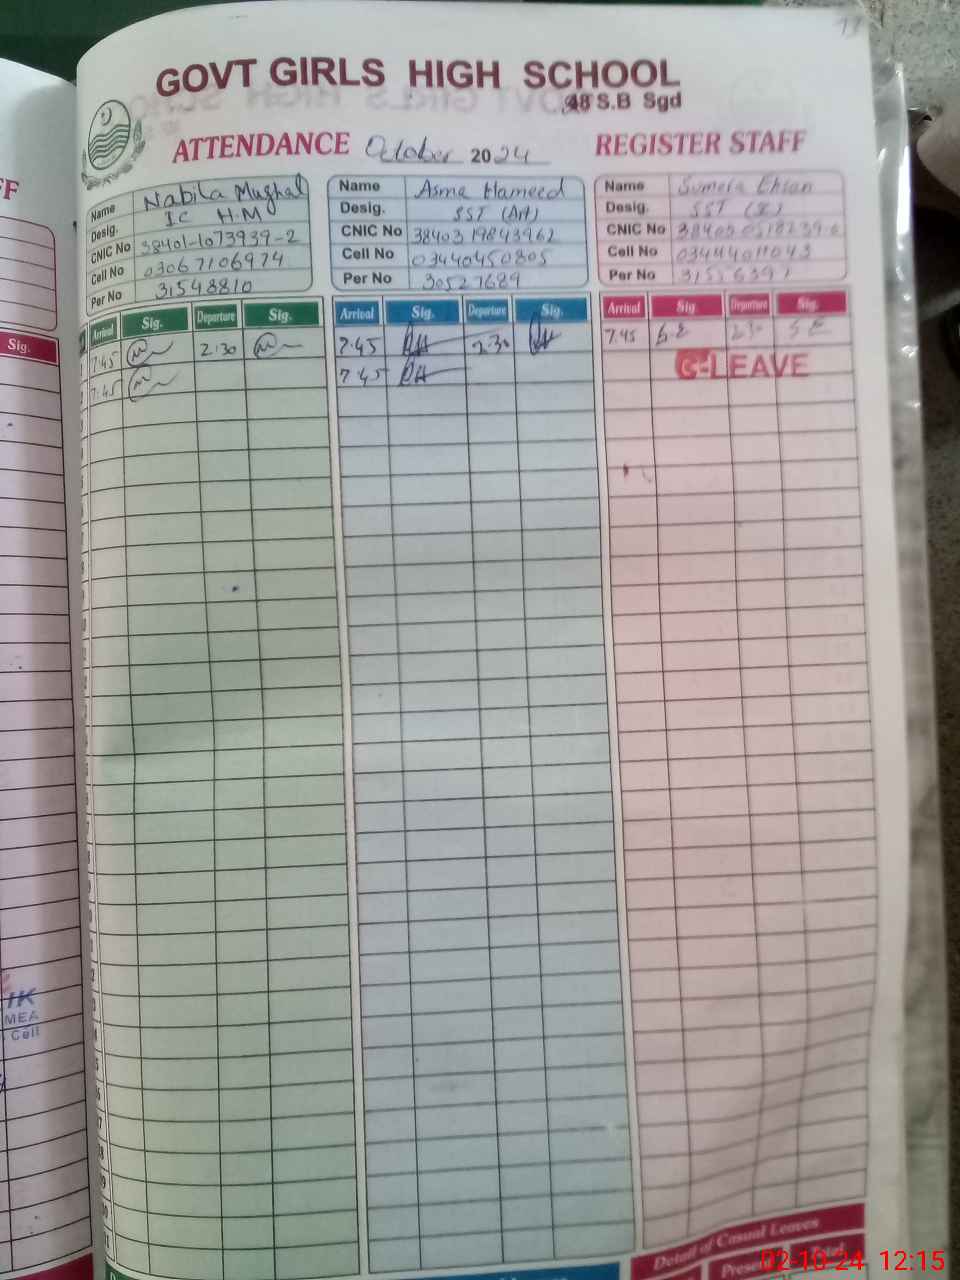 GOVT GIRLS HIGH SCHOOL
48 S.B Sgd
ATTENDANCE October 2024 REGISTER STAFF
Name Nabila Mughal
Desig. IC H.M
CNIC No 38401-1073939-2
Cell No 03067106974
Per No 31548810
Name Asma Hameed
Desig. SST (Art)
CNIC No 3840319843962
Cell No 03440450805
Per No 30527689
Name Sumera Ehsan
Desig. SST
CNIC No
Cell No 03444011043
Per No
Arrival Sig. Departure Sig.
7:45 2:30
7:45
Arrival Sig. Departure Sig.
7:45 2:30
7:45
Arrival Sig. Departure Sig.
7:45 S.E 2:30 S E
C-LEAVE
FF
Sig.
IK
MEA
Cell
Detail of Casual Leaves
02-10-24 12:15